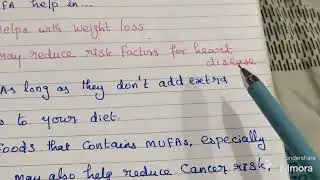 FA help in...
Helps with weight loss
May reduce risk factors for heart
disease
As long as they don't add extra
s to your diet.
Foods that contains MUFAs, especially
may also help reduce Cancer risk,
wondershare
lmora